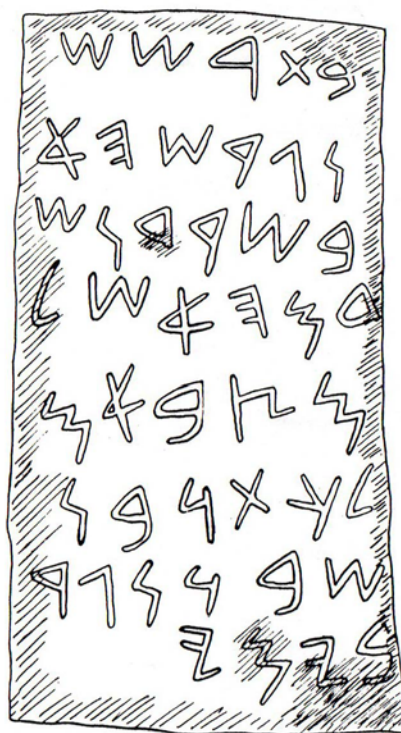 𐤁𐤕𐤓𐤔𐤔
𐤍𐤂𐤓𐤔𐤄𐤀
𐤁𐤔𐤓𐤃𐤍𐤔
𐤃𐤌𐤄𐤀𐤔𐤋
𐤌𐤑𐤁𐤀𐤌
𐤋𐤊𐤕𐤍𐤁𐤍
𐤔𐤁𐤍𐤍𐤂𐤓